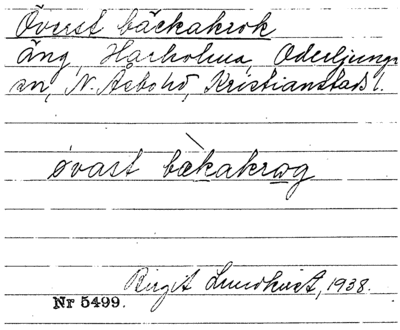 Överst bäckakrok
äng, Harholma, Oderljunga
sn, N. Åsbo hd, Kristianstads l.
øvast bækakrωg
Birgit Lundkvist, 1938.
Nr 5499.